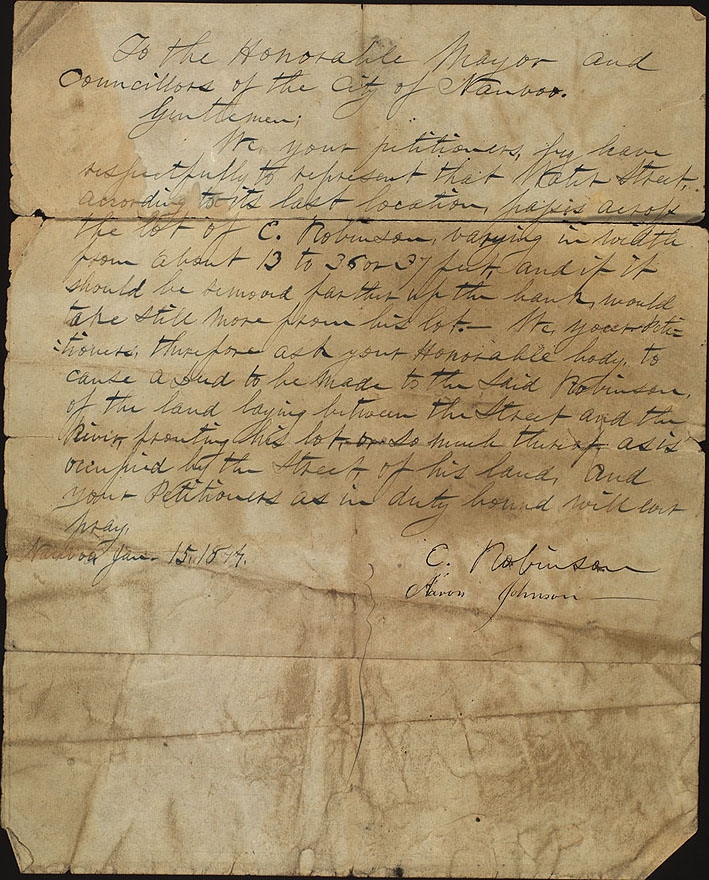 To the Honorable Mayor and
Councillors of the City of Nauvoo.
Gentlemen;
We, your petitioners, beg leave
respectfully to represent that Water Street,
according to its last location, passes across
the lot of C. Robinson, varying in width
from about 13 to 36 or 37 feet, and if it
should be removed farther up the bank, would
take still more from his lot.— We, your peti-
tioners, therefore ask your Honorable body, to
cause a deed to be made to the said Robinson,
of the land laying between the Street and the
River, fronting his lot, or so much thereof, as is
occupied by the Street, of his land, and
your Petitioners as in duty bound will ever
pray.
Nauvoo Jan. 15, 1844.
C. Robinson
Aaron Johnson